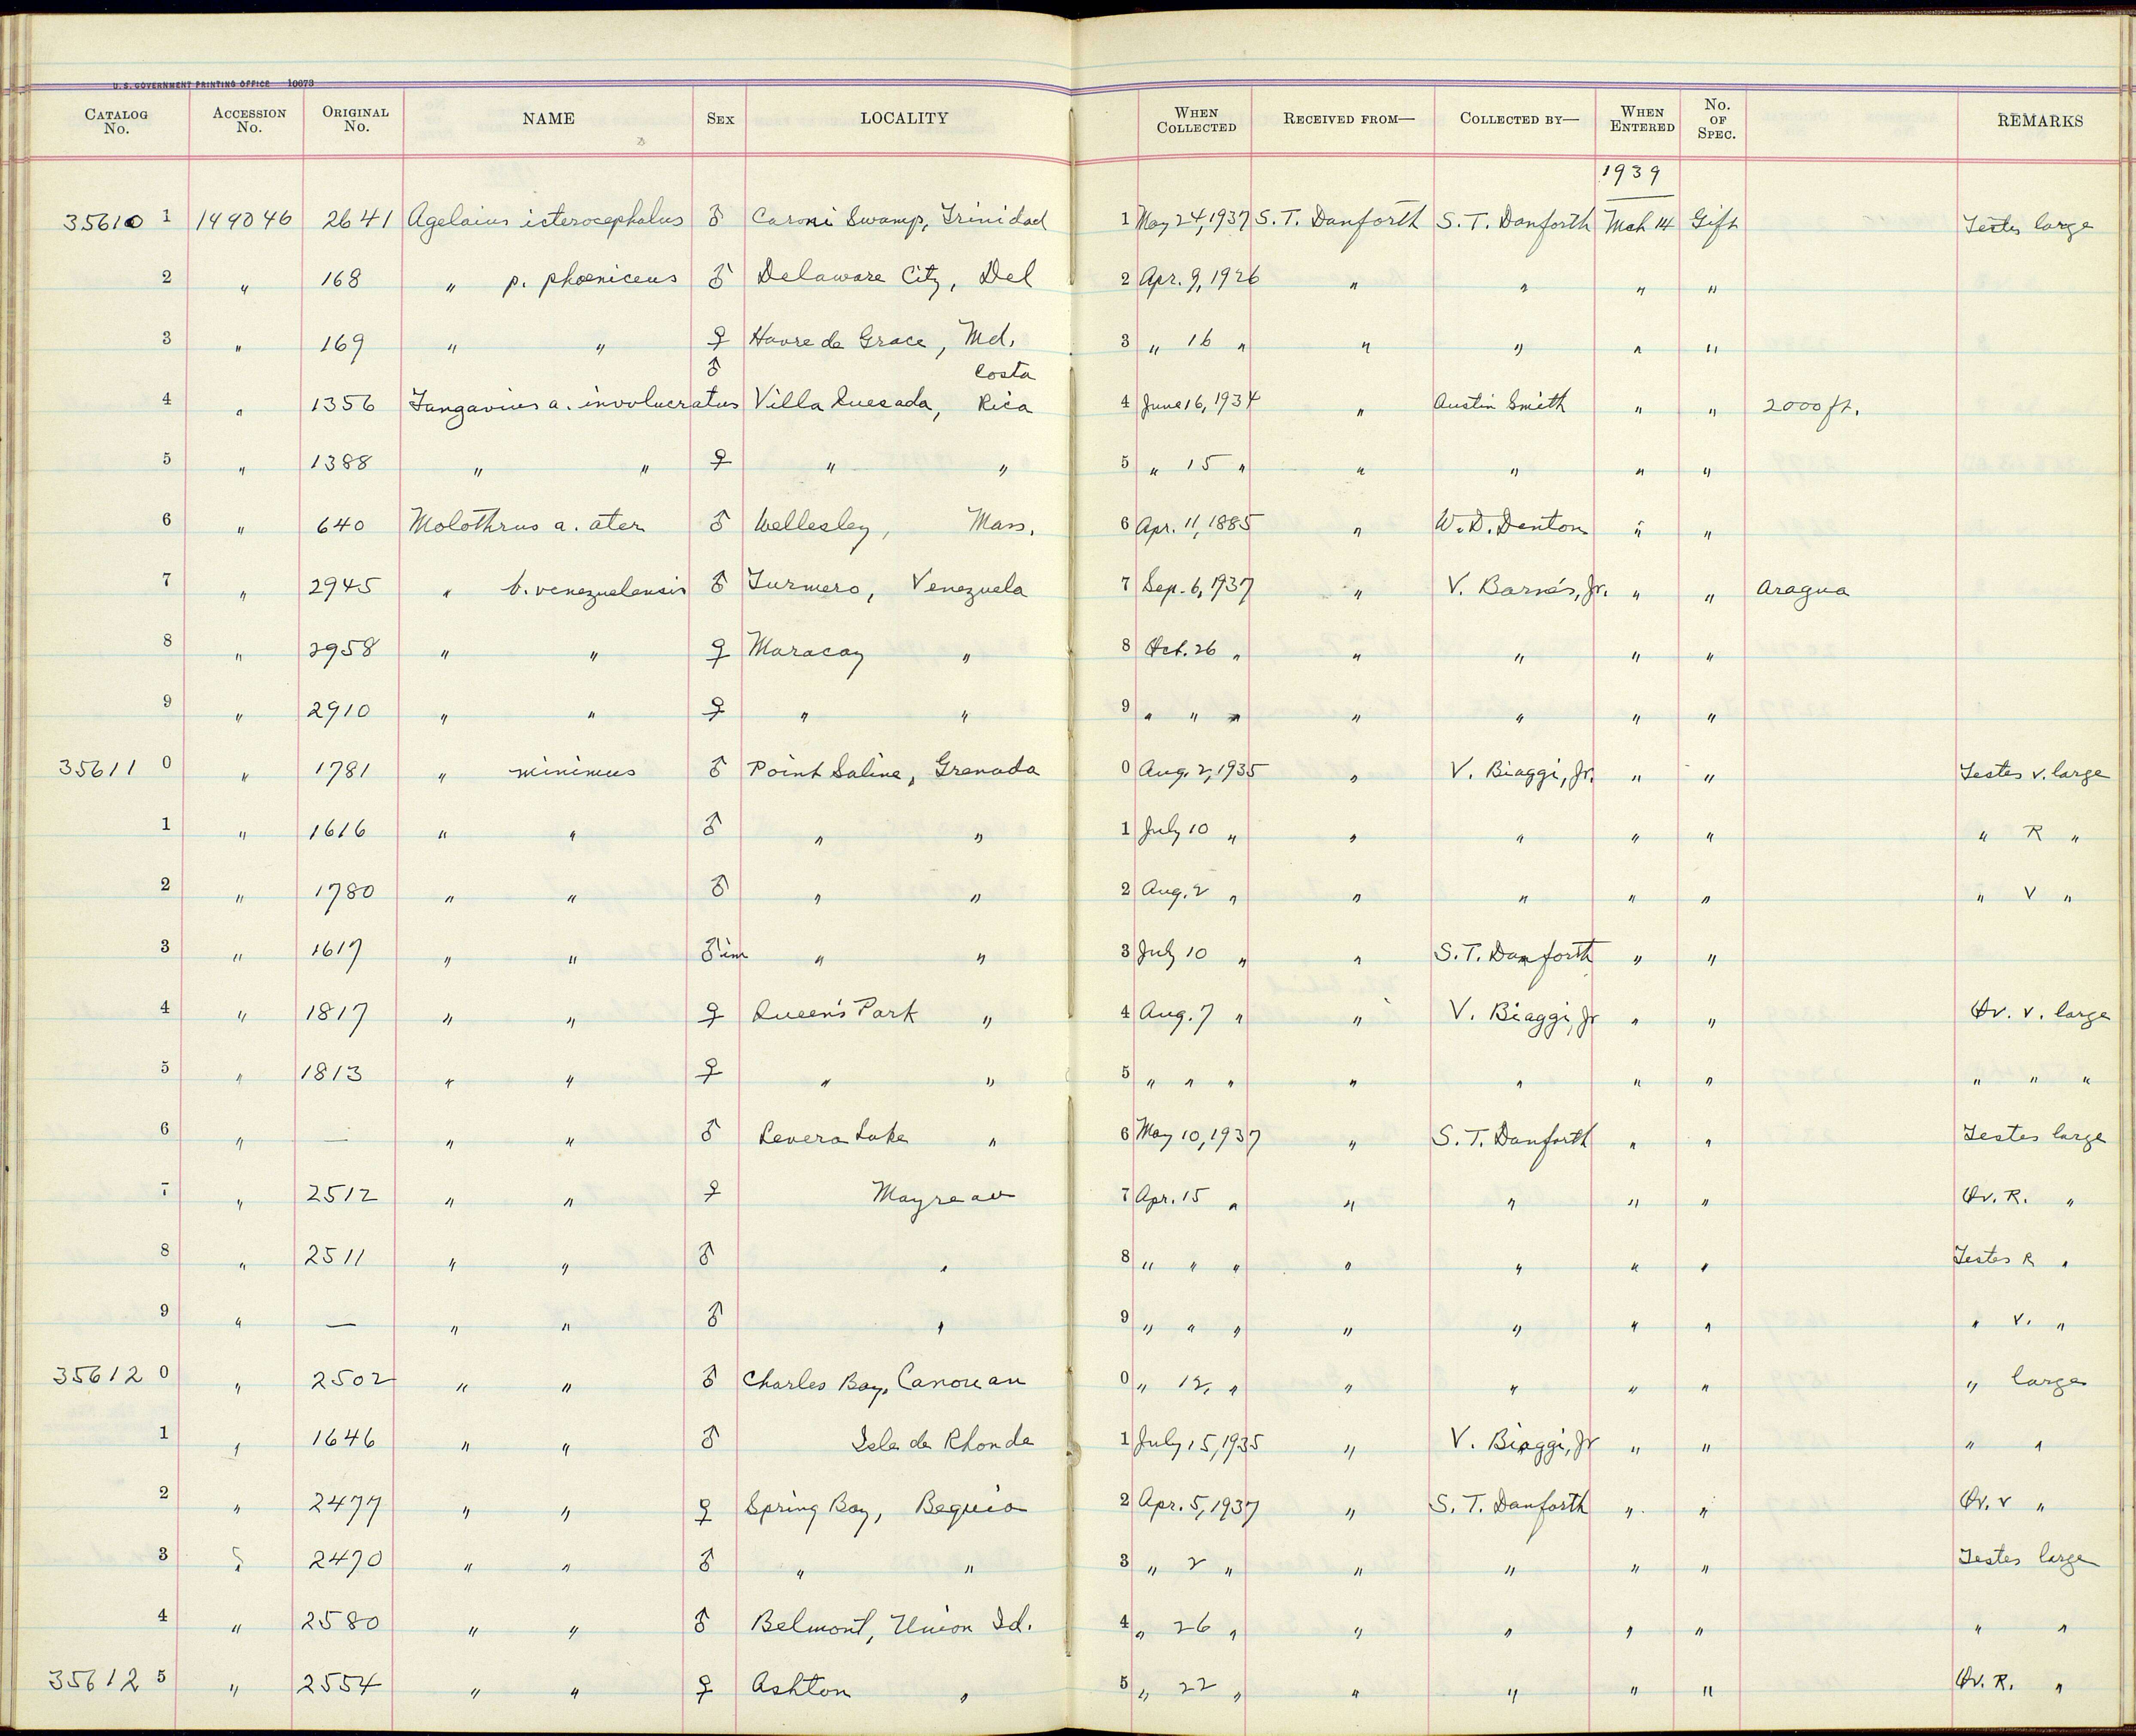 U. S. GOVERNMENT PRINTING OFFICE 10673
CATALOG No. ACCESSION No. ORIGINAL No. NAME SEX LOCALITY WHEN COLLECTED RECEIVED FROM— COLLECTED BY— WHEN ENTERED No. OF SPEC. REMARKS
1939
35610 1 149046 2641 Agelaius icterocephalus ♂ Caroni Swamp, Trinidad 1 May 24, 1937 S. T. Danforth S. T. Danforth Mch 14 Gift Testes large
2 " 168 " p. phoeniceus ♂ Delaware City, Del 2 Apr. 9, 1926 " " " "
3 " 169 " " ♀ Havre de Grace, Md. 3 " 16 " " " " "
4 " 1356 Tangavius a. involucratus ♂ Villa Quesada, Costa Rica 4 June 16, 1934 " Austin Smith " " 2000 ft.
5 " 1388 " " ♀ " " 5 " 15 " " " " "
6 " 640 Molothrus a. ater ♂ Wellesley, Mass. 6 Apr. 11, 1885 " W. D. Denton " "
7 " 2945 " b. venezuelensis ♂ Turmero, Venezuela 7 Sep. 6, 1937 " V. Barnés, Jr. " " Aragua
8 " 2958 " " ♀ Maracay " 8 Oct. 26 " " " " "
9 " 2910 " " ♀ " " 9 " " " " " " "
35611 0 " 1781 " minimus ♂ Point Saline, Grenada 0 Aug. 2, 1935 " V. Biaggi, Jr. " " Testes v. large
1 " 1616 " " ♂ " " 1 July 10 " " " " " " R "
2 " 1780 " " ♂ " " 2 Aug. 2 " " " " " " V "
3 " 1617 " " ♂ im " " 3 July 10 " " S. T. Danforth " "
4 " 1817 " " ♀ Queen's Park " 4 Aug. 7 " " V. Biaggi, Jr " " Ov. v. large
5 " 1813 " " ♀ " " 5 " " " " " " " " " "
6 " — " " ♂ Levera Lake " 6 May 10, 1937 " S. T. Danforth " " Testes large
7 " 2512 " " ♀ Mayreau 7 Apr. 15 " " " " " Ov. R. "
8 " 2511 " " ♂ " 8 " " " " " " " Testes R "
9 " — " " ♂ " 9 " " " " " " " " V. "
35612 0 " 2502 " " ♂ Charles Bay, Canouan 0 " 12, " " " " " " large
1 " 1646 " " ♂ Isle de Rhonde 1 July 15, 1935 " V. Biaggi, Jr " " " "
2 " 2477 " " ♀ Spring Bay, Bequia 2 Apr. 5, 1937 " S. T. Danforth " " Ov. v "
3 " 2470 " " ♂ " " 3 " 2 " " " " " Testes large
4 " 2580 " " ♂ Belmont, Union Id. 4 " 26 " " " " " " "
35612 5 " 2554 " " ♀ Ashton " 5 " 22 " " " " " Ov. R. "